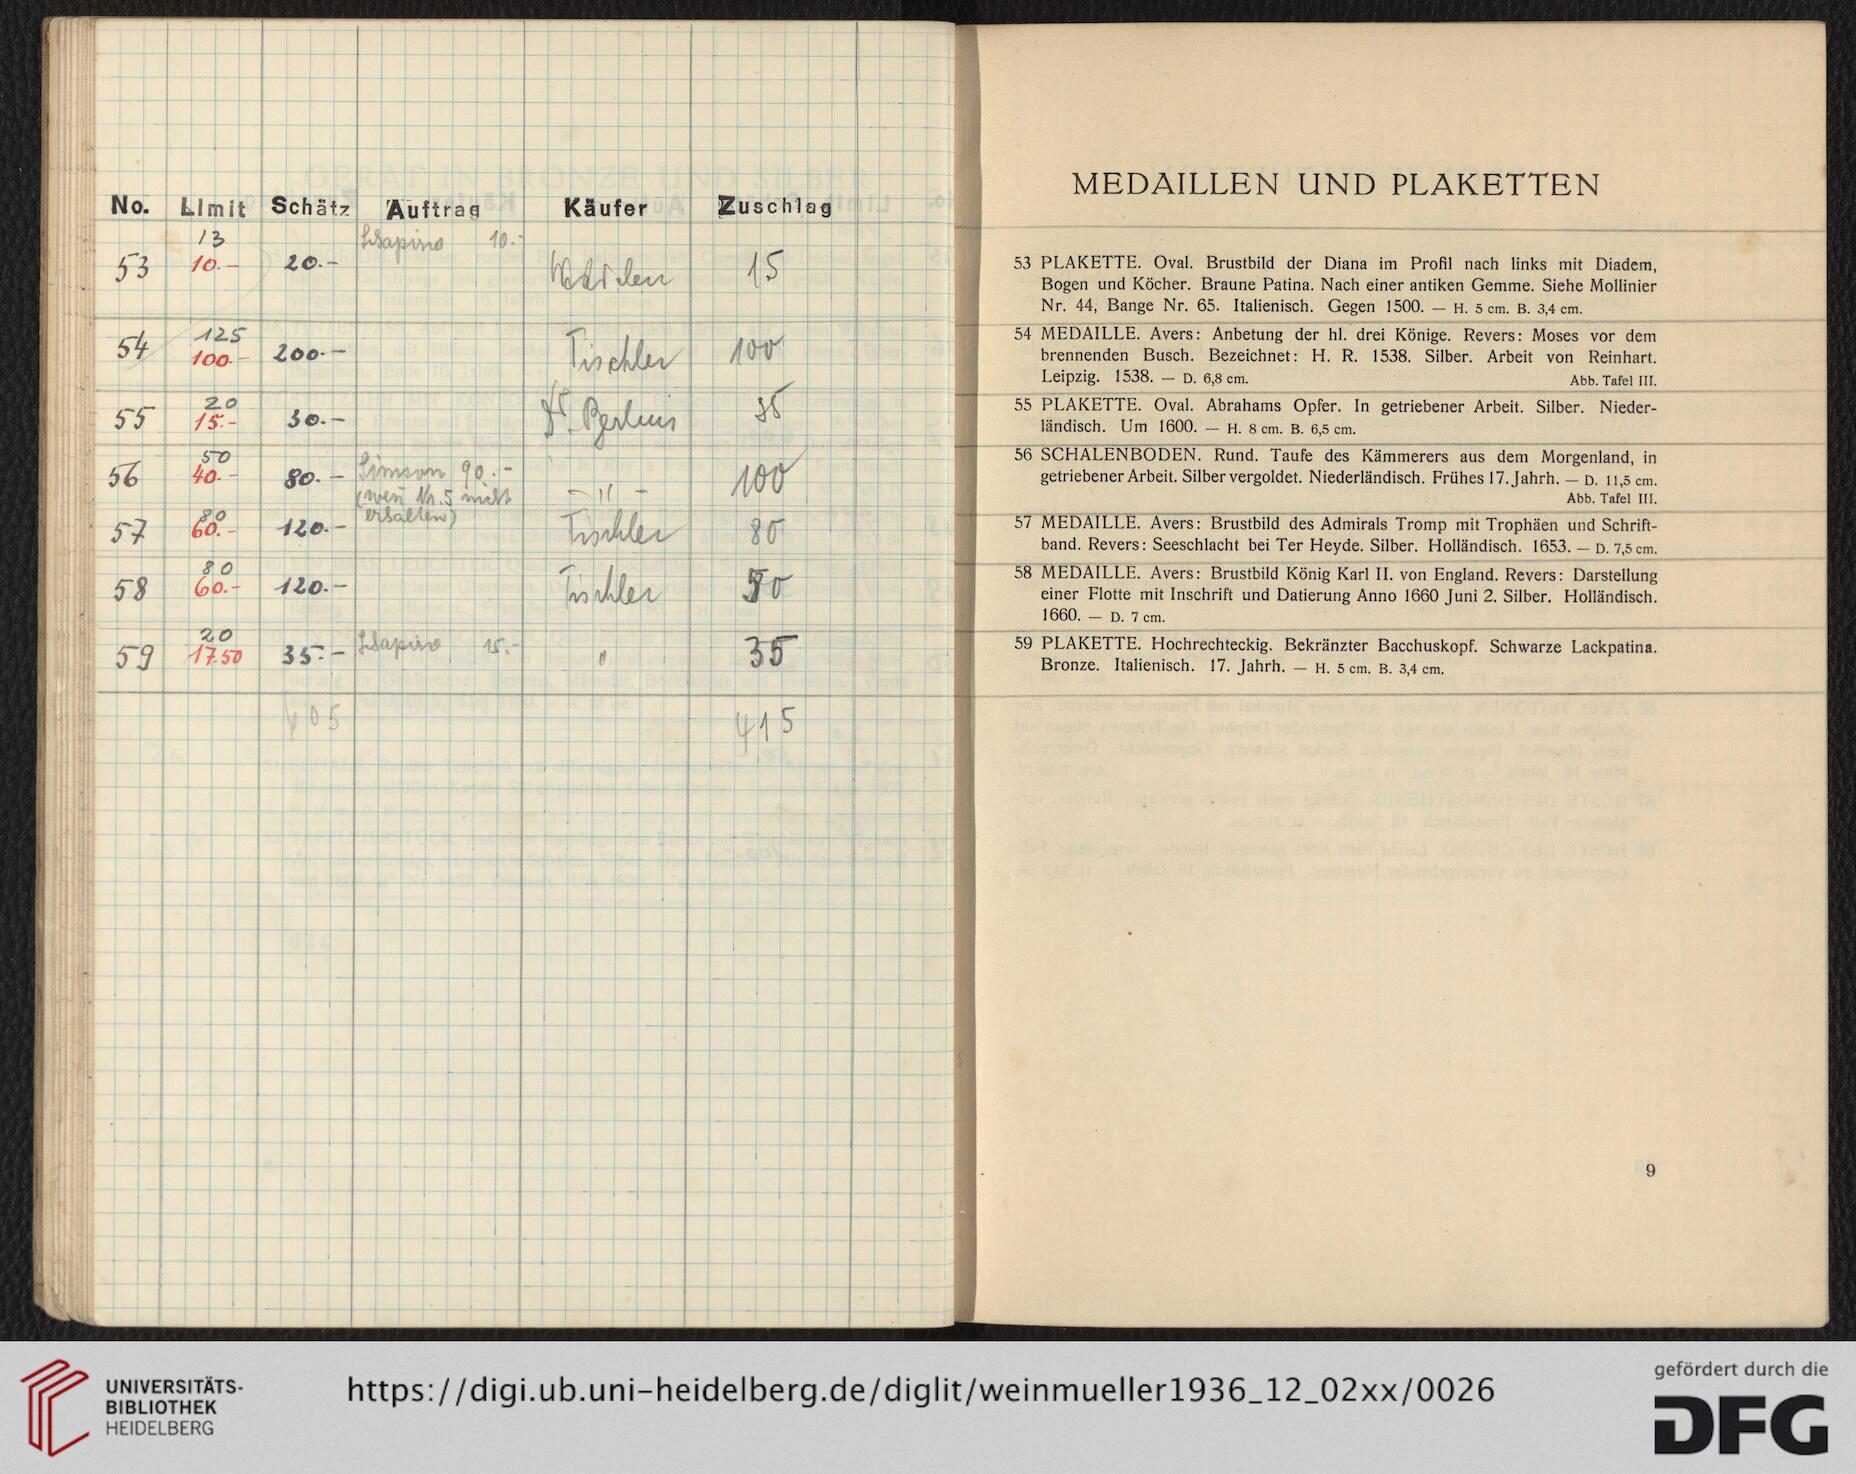 No. Limit Schätz Auftrag Käufer Zuschlag
13 Schapiro 10.-
53 10.- 20.- 15
125
54 100.- 200.- Tischler 100
20
55 15.- 30.- Dr. Berlins 35
50
56 40.- 80.- Simson 90.- - " - 100
(wenn Nr. 5 nicht
erhalten)
80
57 60.- 120.- Tischler 80
80
58 60.- 120.- Tischler 50
20
59 17.50 35.- Schapiro 15.- " 35
405 415
MEDAILLEN UND PLAKETTEN
53 PLAKETTE. Oval. Brustbild der Diana im Profil nach links mit Diadem,
Bogen und Köcher. Braune Patina. Nach einer antiken Gemme. Siehe Mollinier
Nr. 44, Bange Nr. 65. Italienisch. Gegen 1500. — H. 5 cm. B. 3,4 cm.
54 MEDAILLE. Avers: Anbetung der hl. drei Könige. Revers: Moses vor dem
brennenden Busch. Bezeichnet: H. R. 1538. Silber. Arbeit von Reinhart.
Leipzig. 1538. — D. 6,8 cm. Abb. Tafel III.
55 PLAKETTE. Oval. Abrahams Opfer. In getriebener Arbeit. Silber. Nieder-
ländisch. Um 1600. — H. 8 cm. B. 6,5 cm.
56 SCHALENBODEN. Rund. Taufe des Kämmerers aus dem Morgenland, in
getriebener Arbeit. Silber vergoldet. Niederländisch. Frühes 17. Jahrh. — D. 11,5 cm.
Abb. Tafel III.
57 MEDAILLE. Avers: Brustbild des Admirals Tromp mit Trophäen und Schrift-
band. Revers: Seeschlacht bei Ter Heyde. Silber. Holländisch. 1653. — D. 7,5 cm.
58 MEDAILLE. Avers: Brustbild König Karl II. von England. Revers: Darstellung
einer Flotte mit Inschrift und Datierung Anno 1660 Juni 2. Silber. Holländisch.
1660. — D. 7 cm.
59 PLAKETTE. Hochrechteckig. Bekränzter Bacchuskopf. Schwarze Lackpatina.
Bronze. Italienisch. 17. Jahrh. — H. 5 cm. B. 3,4 cm.
9
UNIVERSITÄTS-
BIBLIOTHEK
HEIDELBERG
https://digi.ub.uni-heidelberg.de/diglit/weinmueller1936_12_02xx/0026
gefördert durch die
DFG